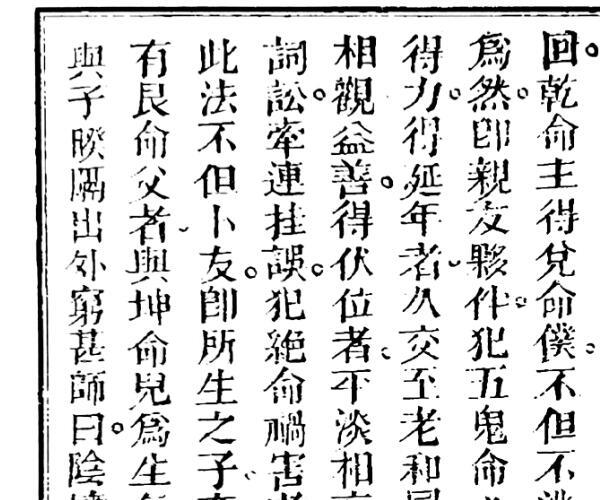 回乾命主得兌命僕不但不
為然卽親友夥伴犯五鬼命
得力得延年者久交至老和
相觀益善得伏位者平淡相
詞訟牽連挂誤犯絶命禍害
此法不但卜友卽所生之子
有艮命父者與坤命兒為生
與子睽隔出外窮甚師曰陰